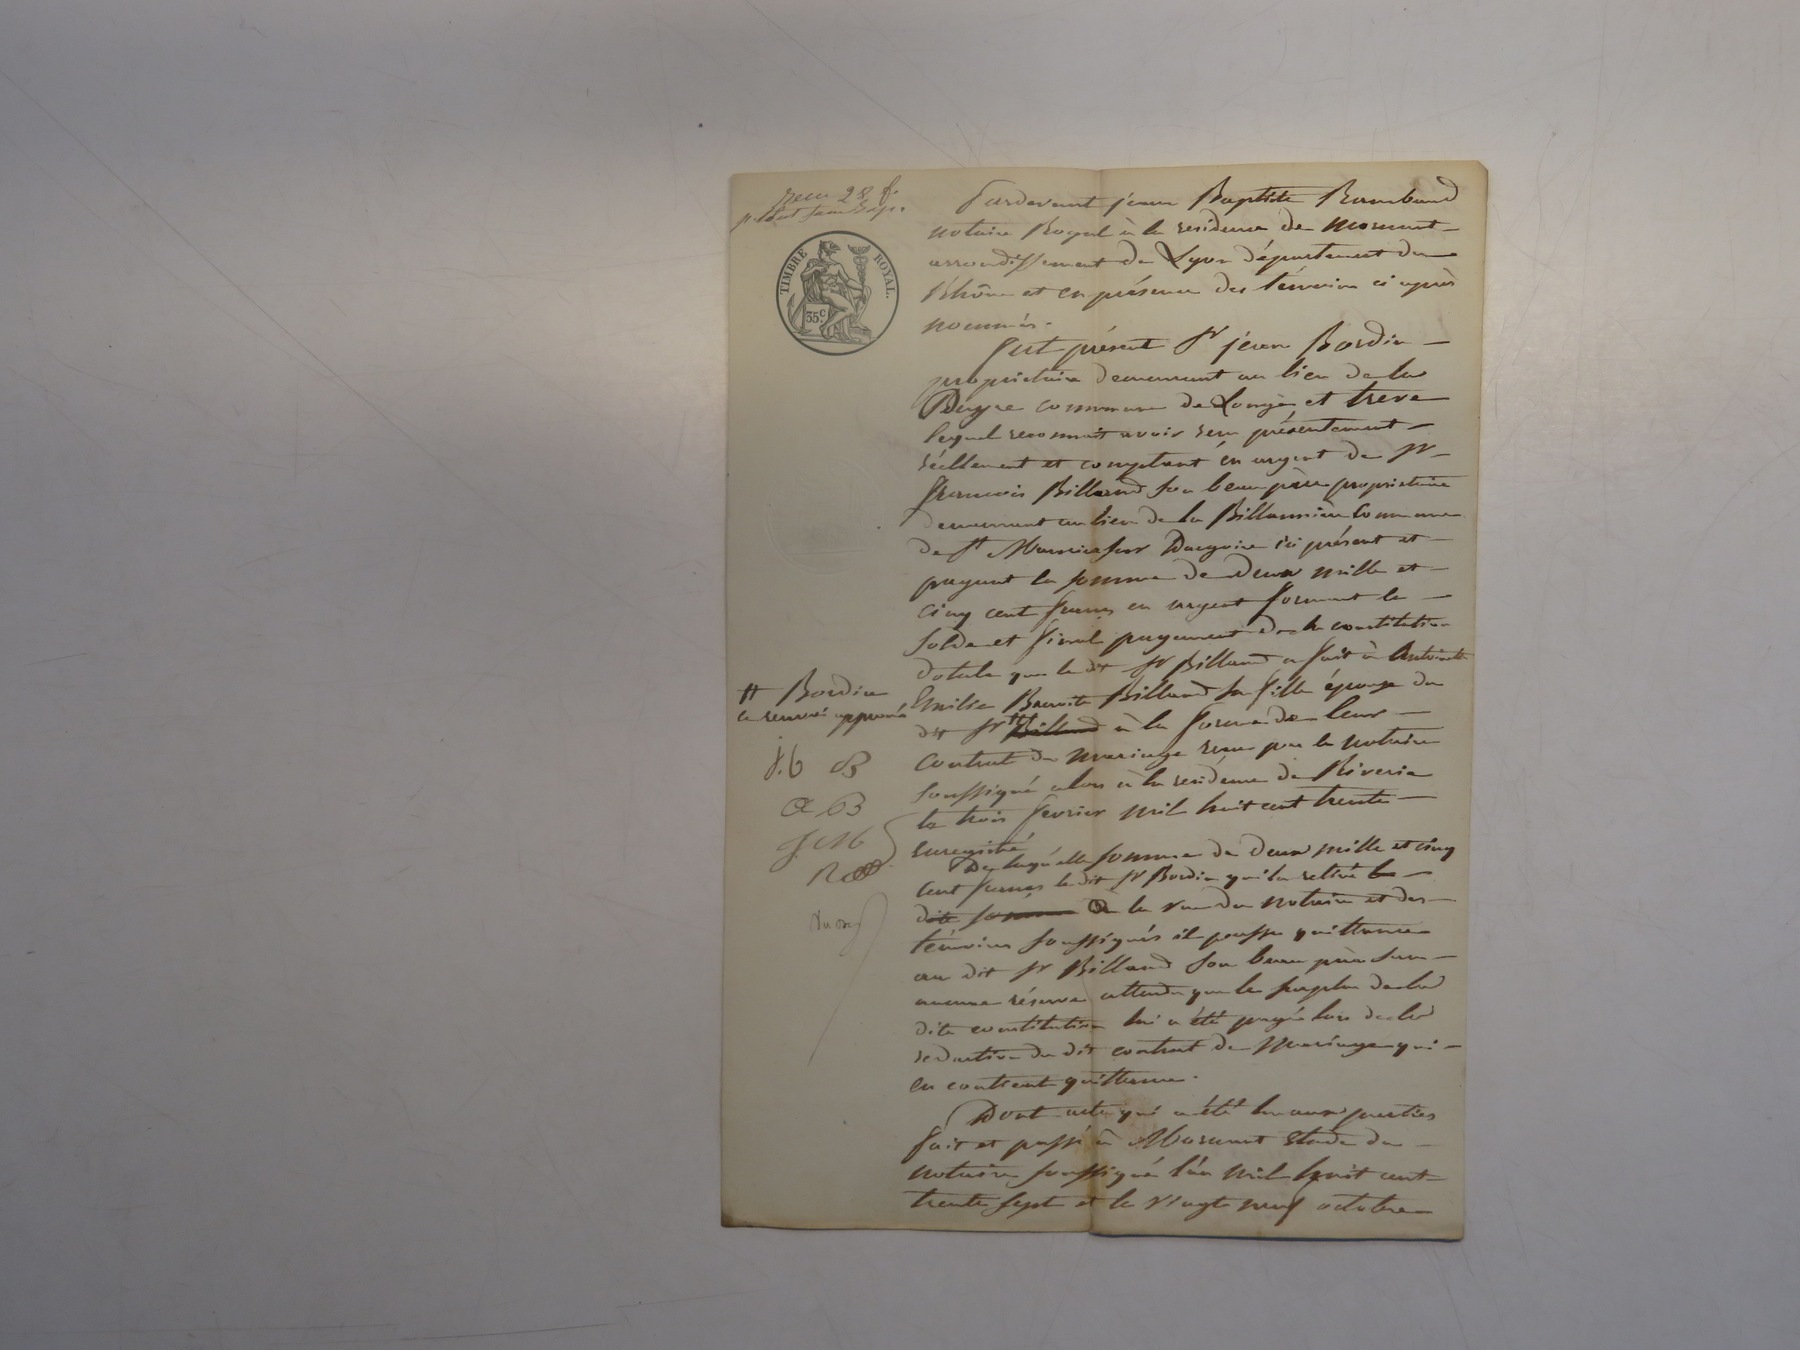 reçu 28 f.
TIMBRE ROYAL.
35 c
Pardevant jean Baptiste Rambaud
notaire Royal à la residence de Mornant
arrondissement de Lyon département du
Rhône et en présence des témoins ci après
nommés.
fut présent Sr jean Bordin
propriétaire demeurant au lieu de la
commune de Longes et treve
lequel reconnait avoir reçu présentement
réellement et comptant en argent de Sr
françois Billand son beau père propriétaire
demeurant au lieu de la Billannière Commune
de St Maurice sur Dargoire ici présent et
payant la somme de deux mille et
cinq cent francs en argent formant le
solde et final payement de la constitution
dotale que le dit Sr Billand a fait à Antoinette
Emilie Benoite Billand sa fille épouse du
dit Sr # Billand à la forme de leur
contrat de mariage reçu par le notaire
soussigné alors à la residence de Riverie
le trois fevrier mil huit cent trente
enregistré
De laquelle somme de deux mille et cinq
cent francs le dit Sr Bordin qui la retiré la
dite somme à la vue du notaire et des
témoins soussignés il passe quittance
au dit Sr Billand son beau père sans
aucune réserve attendu que le surplus de la
dite constitution lui a été payé lors de la
redaction du dit contrat de Mariage qui
en contient quittance.
Dont acte qui a été lu aux parties
fait et passé à Mornant etude du
notaire soussigné l'an mil huit cent
trente sept et le vingt neuf octobre
# Bordin
ce renvoi approuvé
J.B